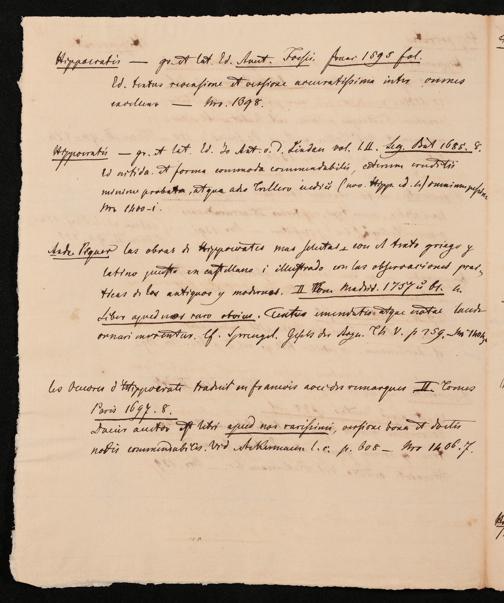 Hippocratis — gr. et lat. Ed. Anut. Foesii. Franc 1595 fol.
Ed. textus recensione et versione accuratissima inter omnes
excellens — Nro. 1398.
Hippocratis — gr. et lat. Ed. Jo Ant. v. d. Linden vol. I.II. Lug. Bat 1665. 8.
Ed nitida et forma commoda commendabilis, ceterum eruditis
minime probata, atque adeo Trillero iudice (nov. Hipp. ed. 4) omnium pessima
Nro 1400-1.
Andr. Piquer las obras de Hippocrates mas selectas con el texto griego y
latino puesto en castellano i illustrado con las observaciones prac-
ticas de los antiguos y modernos. II Tom. Madrid. 1757 à 61. 4.
Liber apud nos raro obvius. Textus emendatis atque notae laude
cf. Sprengel. Gesch. der Arzn. Th. V. p 259.
Les Oeuvres d'Hippocrate traduit en francois avec des remarques II Tomes
Paris 1697. 8.
Dacius auctor est libri apud nos rarissimi, versione bona et doctis
notis commendabilis. Vid Ackermann l. c. p. 608 — Nro 1406. 7.